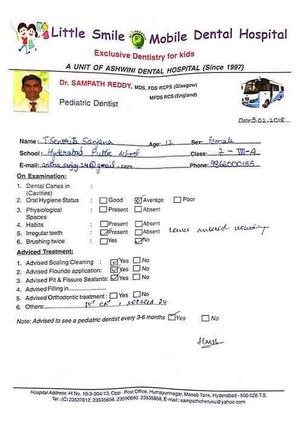 Little Smile Mobile Dental Hospital
Exclusive Dentistry for kids
A UNIT OF ASHWINI DENTAL HOSPITAL (Since 1997)
Dr. SAMPATH REDDY, MDS, FDS RCPS (Glasgow)
MFDS RCS (England)
Pediatric Dentist
Date: 5.02.2018
Name: Age: 12 Sex: Female
School: Hyderabad Public School Class: VII-A
E-mail: Phone: 9866000155
On Examination:
1. Dental Caries in (Cavities)
2. Oral Hygiene Status : Good Average Poor
3. Physiological Spaces : Present Absent
4. Habits : Present Absent
5. Irregular teeth : Present Absent
6. Brushing twice : Yes No
Adviced Treatment:
1. Advised Scaling Cleaning : Yes No
2. Advised Flouride application: Yes No
3. Advised Pit & Fissure Sealants: Yes No
4. Advised Filling in
5. Advised Orthodontic treatment : Yes No
6. Others:
Note: Advised to see a pediatric dentist every 3-6 months Yes No
Hospital Address: H.No. 10-3-304/13, Opp: Post Office, Humayunnagar, Masab Tank, Hyderabad - 500 028 T.S.
Tel: (C) 23537612, 23535658, 23530690, 23535858, E-mail: sampathcheruku@yahoo.com